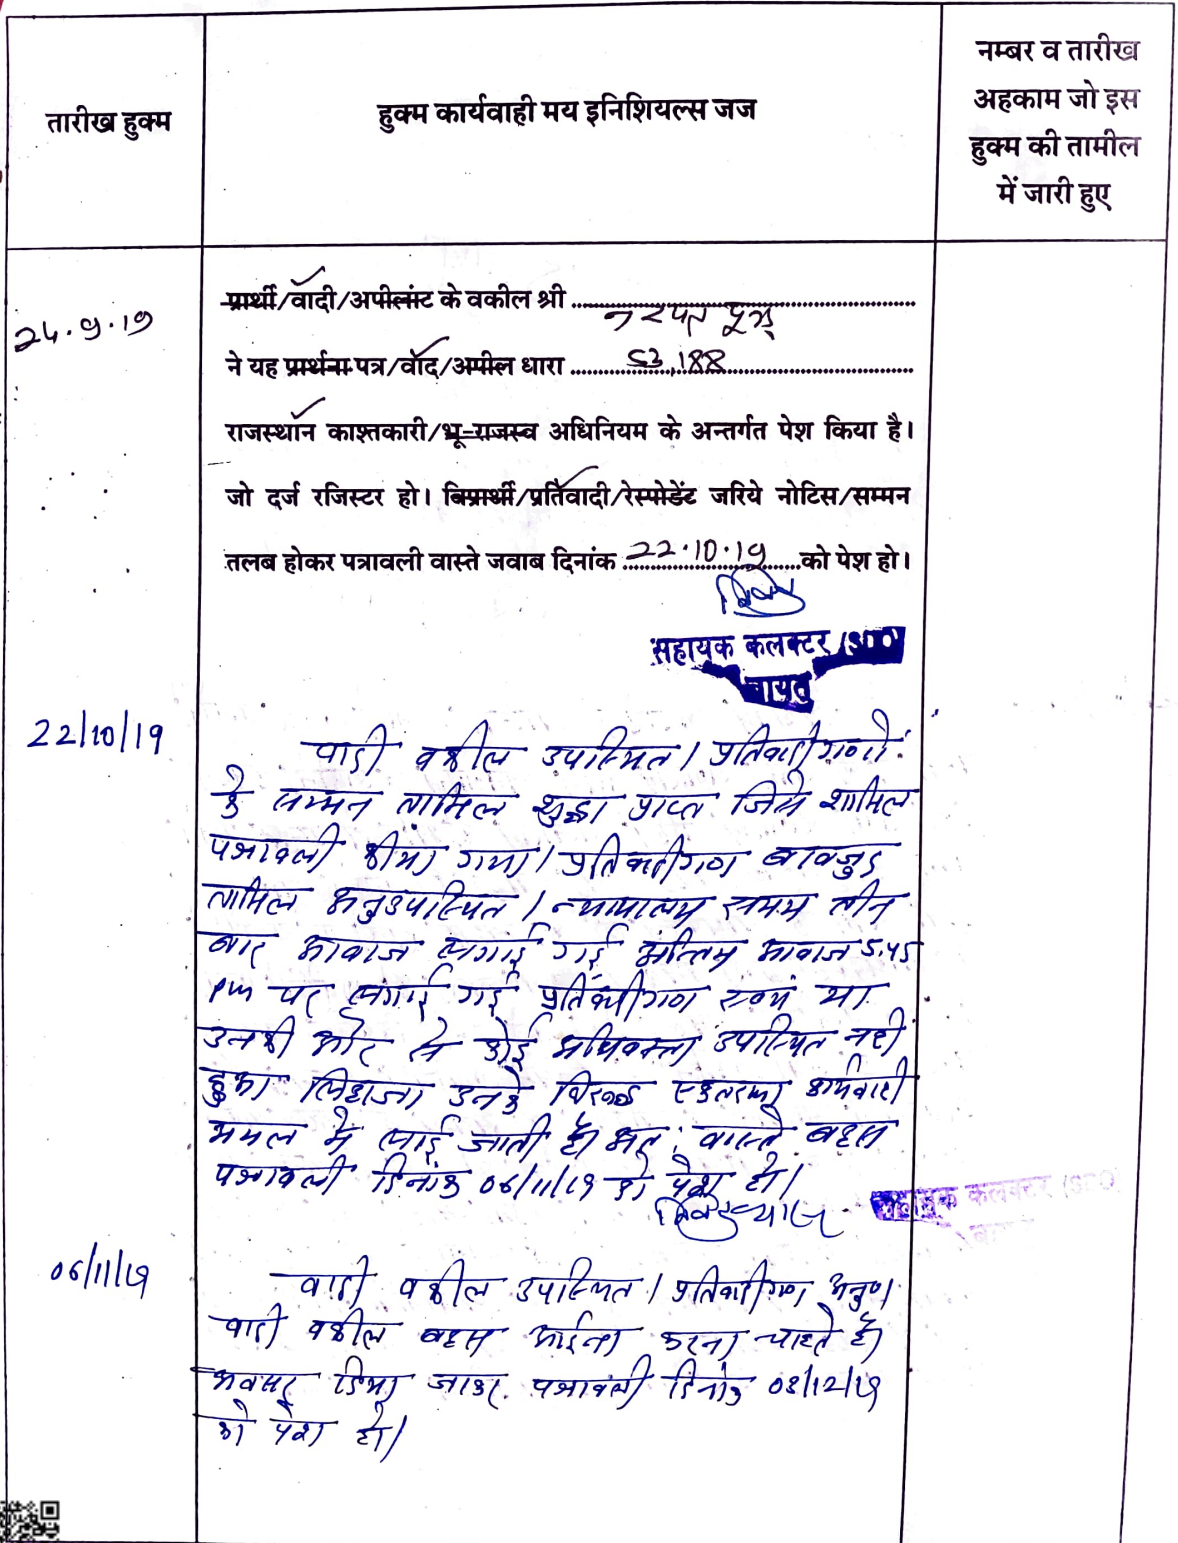 तारीख हुक्म
हुक्म कार्यवाही मय इनिशियल्स जज
नम्बर व तारीख
अहकाम जो इस
हुक्म की तामील
में जारी हुए
24.9.19
प्रार्थी/वादी/अपीलांट के वकील श्री
ने यह प्रार्थना पत्र/वाद/अपील धारा 53,188
राजस्थान काश्तकारी/भू-राजस्व अधिनियम के अन्तर्गत पेश किया है।
जो दर्ज रजिस्टर हो। विप्रार्थी/प्रतिवादी/रेस्पोडेंट जरिये नोटिस/सम्मन
तलब होकर पत्रावली वास्ते जवाब दिनांक 22.10.19 को पेश हो।
सहायक कलक्टर (SDO)
बायतु
22/10/19
वादी वकील उपस्थित। प्रतिवादीगणों
के सम्मन तामिल शुद्धा प्राप्त जिसे शामिल
पत्रावली कीया गया। प्रतिवादीगण बावजुद
तामिल अनुउपस्थित। न्यायालय समय तीन
बार आवाज लगाई गई अन्तिम आवाज 5.45
pm पर लगाई गई प्रतिवादीगण स्वयं या
उनकी और से कोई अधिवक्ता उपस्थित नही
हुआ लिहाजा उनके विरूद्ध एकतरफा कार्यवाही
अमल मे लाई जाती है। अत: वास्ते बहस
पत्रावली दिनांक 06/11/19 को पेश हो।
सहायक कलक्टर (SDO)
06/11/19
वादी वकील उपस्थित। प्रतिवादीगण अनु०।
वादी वकील बहस आईन्दा करना चाहते है।
अवसर दिया जाकर पत्रावली दिनांक 03/12/19
को पेश हो।